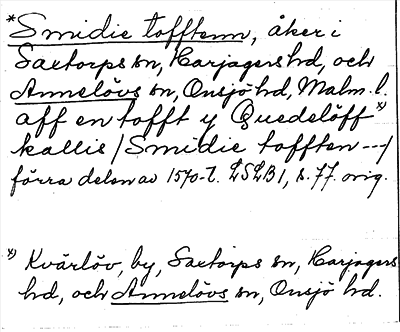 *Smidie tofftenn, åker i
Saxtorps sn, Harjagers hd, och
Annelövs sn, Onsjö hd, Malm. l.
aff en tofft y Quedelöff *)
kallis /Smidie tofften ---/
förra delen av 1570-t. LSLB 1, s. 77. orig.
*) Kvärlöv, by, Saxtorps sn, Harjagers
hd, och Annelövs sn, Onsjö hd.